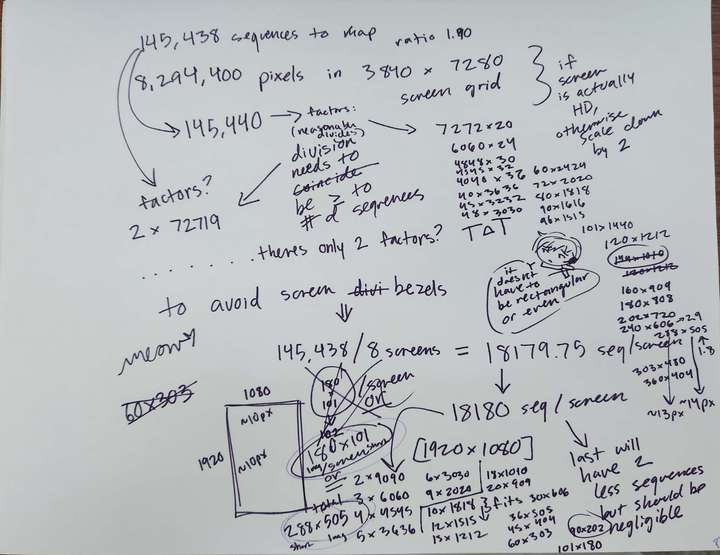 145,438 sequences to map ratio 1.90
8,294,400 pixels in 3840 x 7280
screen grid
if
screen
is actually
HD,
otherwise
scale down
by 2
145,440 → factors:
(reasonable
divides)
division
needs to
coincide
be ≥ to
# of sequences
7272 x 20
6060 x 24
4848 x 30
4545 x 32
4040 x 36
40 x 3636
45 x 3232
48 x 3030
60 x 2424
72 x 2020
80 x 1818
90 x 1616
96 x 1515
TΔT
101 x 1440
120 x 1212
144 x 1010
160 x 909
180 x 808
202 x 720
240 x 606 → 2.9
288 x 505
1.8
303 x 480
360 x 404
~13px
~14px
factors?
2 x 72719
........ theres only 2 factors?
it
doesn't
have to
be rectangular
or even
to avoid screen divi bezels
meow
145,438 / 8 screens = 18179.75 seq/screen
60 x 303
180
x
101
/screen
or
18180 seq/screen
1080
1920
~10px
~10px
180 x 101
or
[1920 x 1080]
2 x 9090
3 x 6060
4 x 4545
5 x 3636
6 x 3030
9 x 2020
10 x 1818
12 x 1515
15 x 1212
18 x 1010
20 x 909
fits
30 x 606
36 x 505
45 x 404
60 x 303
90 x 202
101 x 180
288 x 505
short
long
last will
have 2
less sequences
but should be
negligible